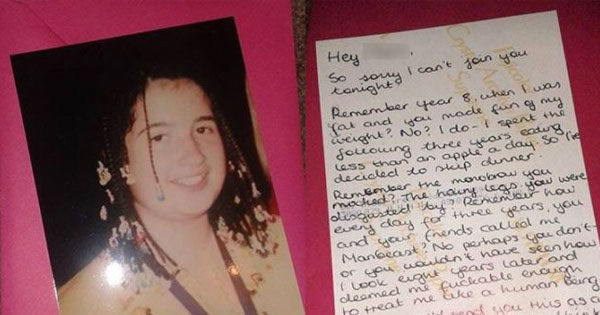 Hey
So sorry I can't join you
tonight.
Remember year 8, when I was
fat and you made fun of my
weight? No? I do - I spent the
following three years eating
less than an apple a day. So I've
decided to skip dinner.
Remember the monobrow you
mocked? The hairy legs you were
disgusted by? Remember how
every day for three years, you
and your friends called me
Manbeast? No perhaps you don't -
or you wouldn't have seen how
I look eight years later and
deemed me fuckable enough
to treat me like a human being
send you this as a